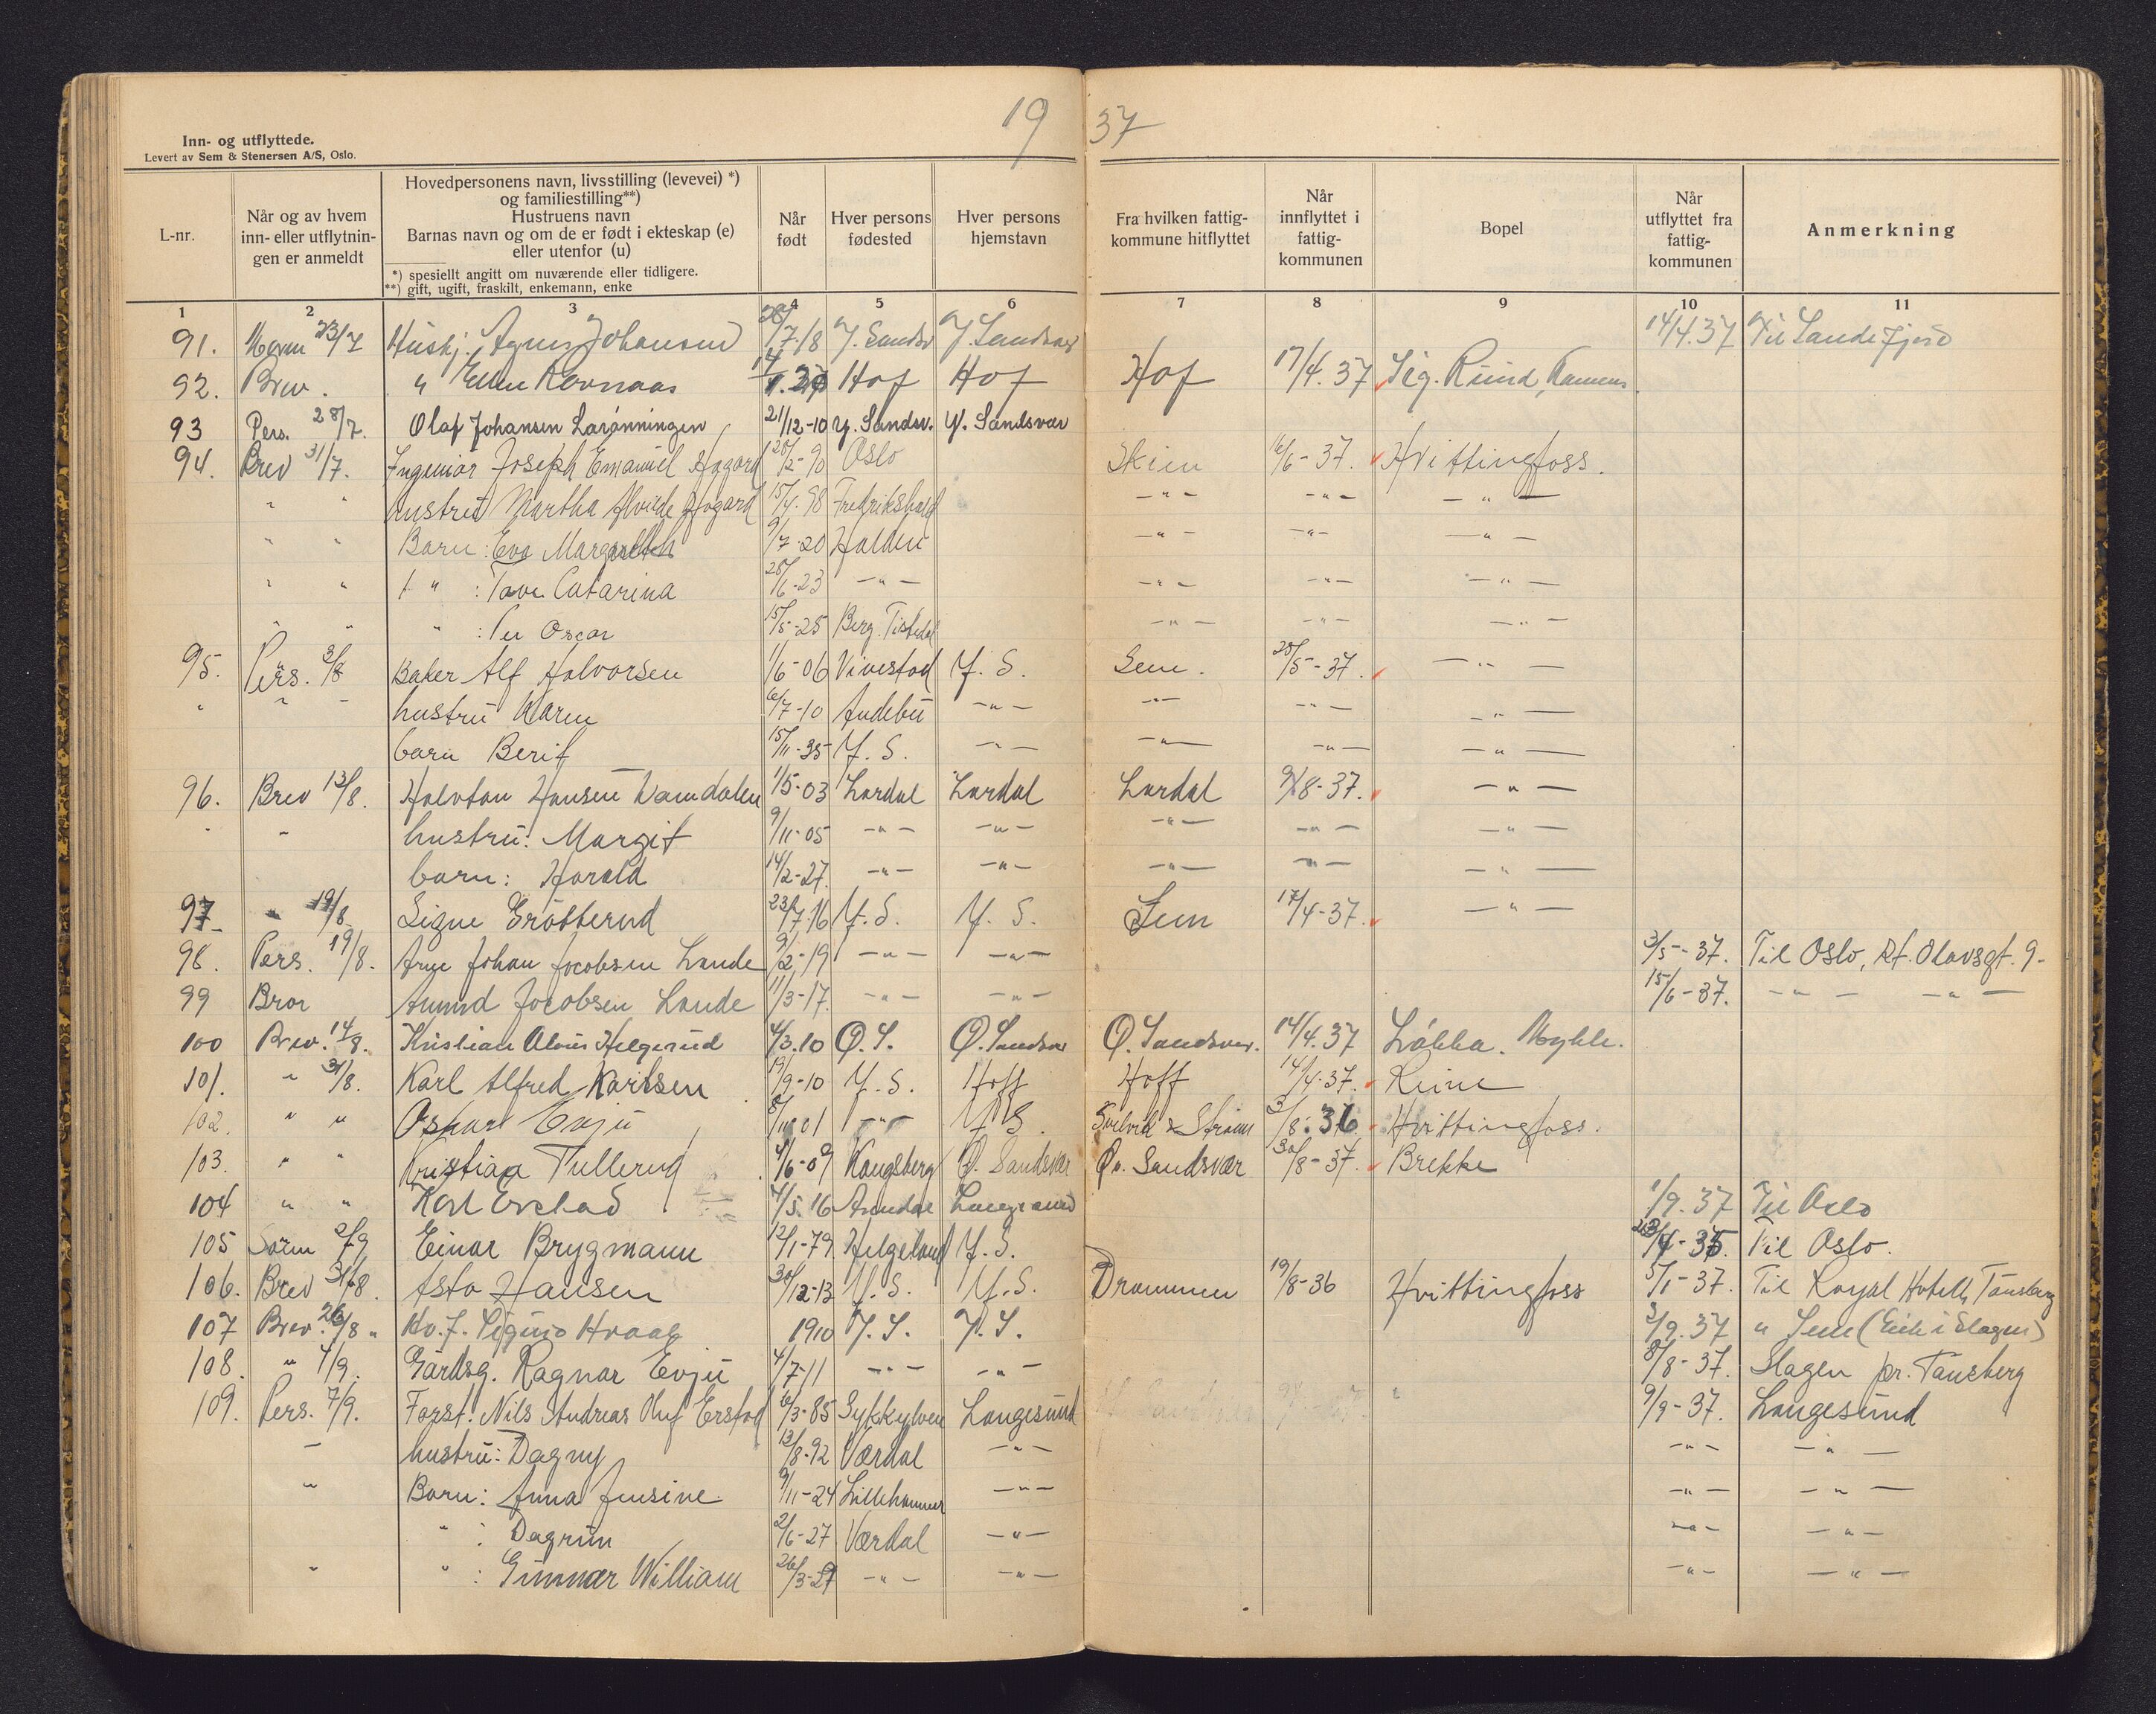 19 37
Inn- og utflyttede.
Levert av Sem & Stenersen A/S, Oslo.
L-nr.
Når og av hvem inn- eller utflytnin- gen er anmeldt
Hovedpersonens navn, livsstilling (levevei) *)
og familiestilling**)
Hustruens navn
Barnas navn og om de er født i ekteskap (e)
eller utenfor (u)
*) spesiellt angitt om nuværende eller tidligere.
**) gift, ugift, fraskilt, enkemann, enke
Når født
Hver persons fødested
Hver persons hjemstavn
Fra hvilken fattig- kommune hitflyttet
Når innflyttet i fattig- kommunen
Bopel
Når utflyttet fra fattig- kommunen
Anmerkning
1 2 3 4 5 6 7 8 9 10 11
91. 23/7 Hushj. Agnes Johansen 28/7-18 Y. Sandsv Y. Sandsvær 14/4.37 Til Sandefjord
92. Brev. " Ellen Hof Hof Hof 17/4.37 Sig. Ruud,
93 Pers. 28/7. Olaf Johansen Larønningen 21/12-10 Y. Sandsv. Y. Sandsvær
94. Brev 31/7. Ingeniør Joseph Emanuel 28/2-90 Oslo Skien 16/6-37. Hvittingfoss.
" " hustru Martha 15/4.98 Fredrikshald -"- -"- -"-
" " Barn: Eva Margreth 9/7-20 Halden -"- -"- -"-
" " " : Tove Catarina 28/6-23 -"- -"- -"- -"-
" " " : Per Oscar 15/5-25 Berg. Tistedal -"- -"- -"-
95. Pers. 3/8 Baker Alf Halvorsen 1/6-06 Vivestad Y. S. Sem. 28/5-37. -"-
" " - hustru Karen 6/7-10 Andebu -"- -"- -"- -"-
barn Berit 15/11-35 Y. S. -"- -"- -"- -"-
96. Brev 13/8. Halvtan Hansen 1/5-03 Lardal Lardal Lardal 9/8-37. -"-
" " hustru: Margit 9/11-05 -"- -"- -"- -"- -"-
barn: Harald 14/2-27. -"- -"- -"- -"- -"-
97 " 19/8. Signe Grøtterud 23/7.16 Y. S. Y. S. Sem 17/4-37. -"-
98. Pers. 19/8. Arne Johan Jacobsen Lande 9/2-19 -"- -"- 3/5-37. Til Oslo, St. Olavsgt. 9.
99 Bror Amund Jacobsen Lande 11/3-17. -"- -"- 15/6-37. -"- -"-
100 Brev. 14/8. Kristian Helgerud 4/3.10 Ø. S. Ø. Sandsvær Ø. Sandsvær. 14/4.37 Løkka.
101. " 31/8. Karl Alfred Karlsen 19/9-10 Y. S. Hoff Hoff 14/4-37.
102. " " Oskar Evju 8/11 01 -"- Y S. Svelvik & Strøm 3/8.36 Hvittingfoss.
103. " " Kristian Tullerud 4/6-09 Kongsberg Ø. Sandsvær Øv. Sandsvær 30/8-37. Brekke
104 " " Karl Erstad 4/5.16 Langesund 1/9.37 Til Oslo
105 2/9 Einar Brygmann 12/1-79. Helgeland Y. S. Til Oslo.
106. Brev 31/8. Asta Hansen 30/12-13 Y. S. Y. S. Drammen 19/8-36 Hvittingfoss 5/1-37. Til Royal Hotell, Tønsberg
107 Brev. 26/8 " 1910 Y. S. Y. S. 3/9.37 " Sem (Eik i Slagen)
108. " 4/9. Gårdsg. Ragnar Evju 4/7-11 -"- -"- 8/8-37. Slagen pr. Tønsberg
109. Pers. 7/9. Forst. Nils Andreas Erstad 6/3-85 Sykkylven Langesund 9/9-37. Langesund
- hustru: Dagny 13/8-92 Værdal -"- -"- -"-
" Barn: Anna Jensine 9/11-24 Lillehammer -"- -"- -"-
" : Dagrun 2/6-27 Værdal -"- -"- -"-
" " : Gunnar William 26/3-29 -"- -"- -"- -"-